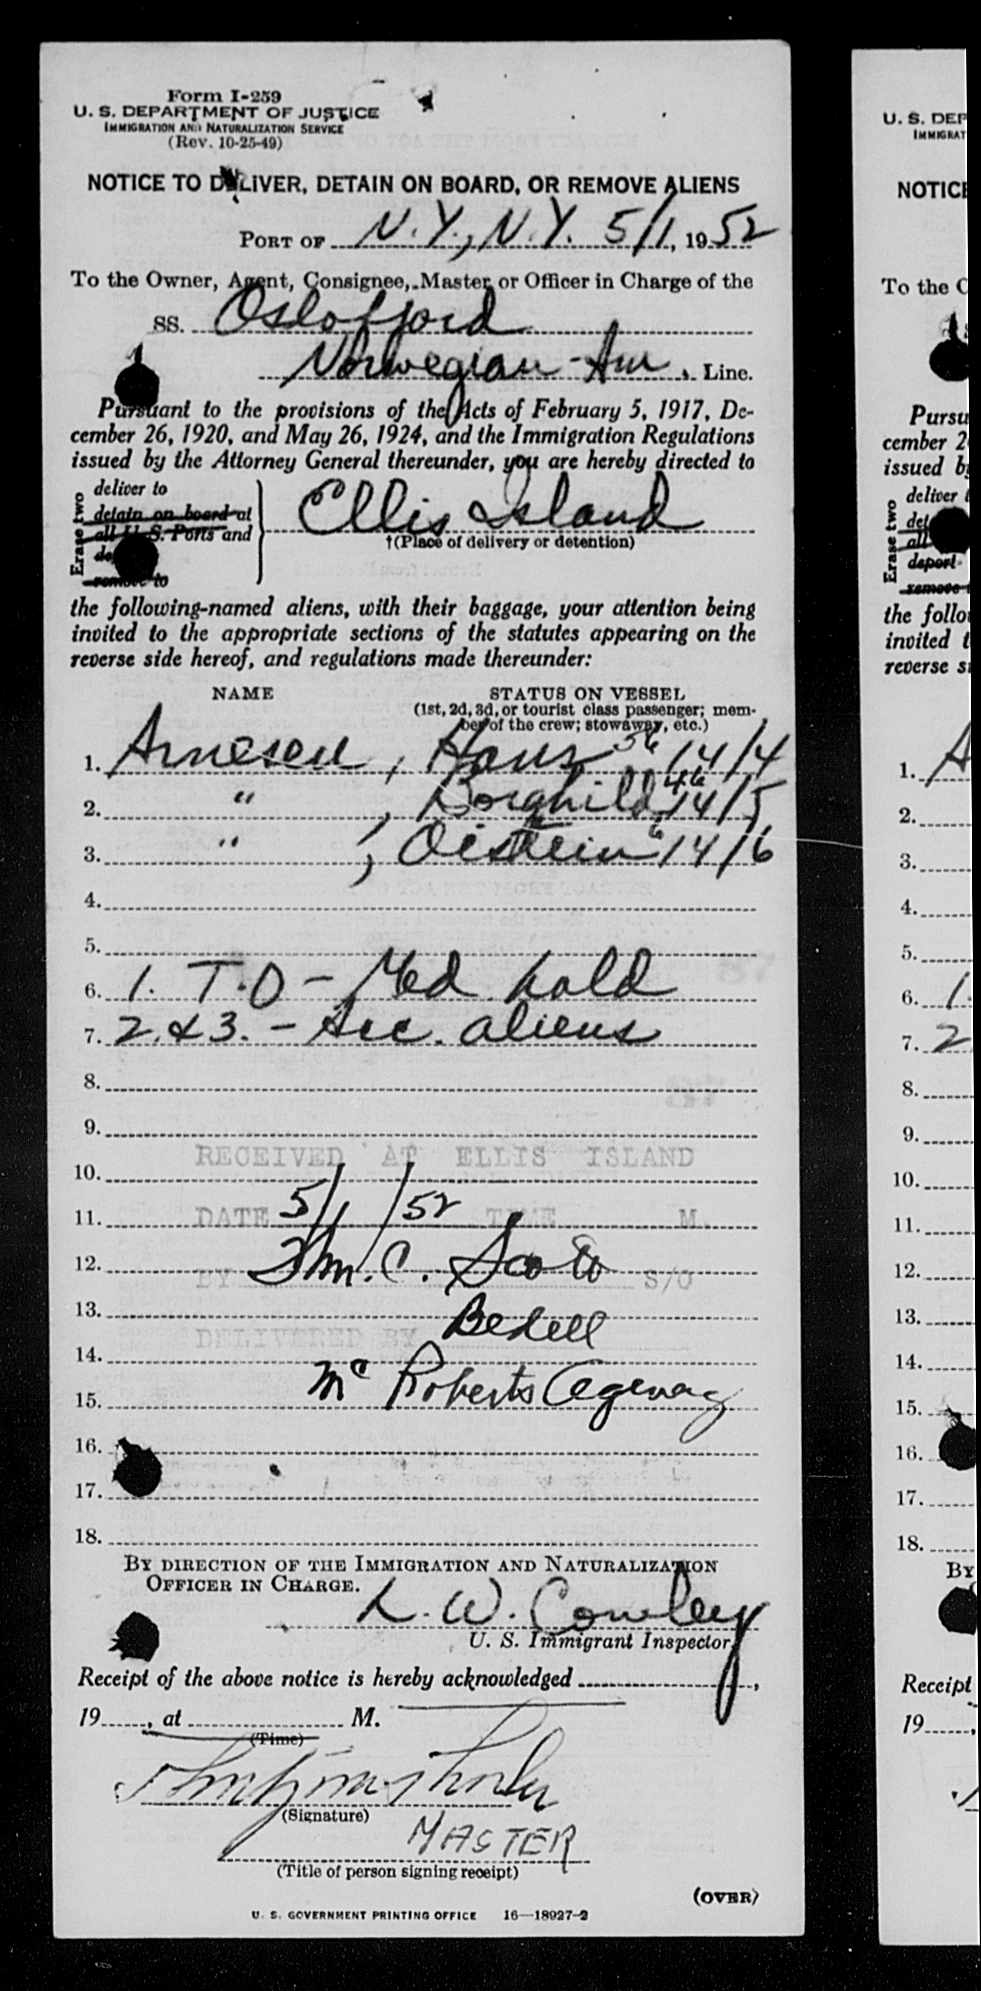 Form I-259
U. S. DEPARTMENT OF JUSTICE
IMMIGRATION AND NATURALIZATION SERVICE
(Rev. 10-25-49)
NOTICE TO DELIVER, DETAIN ON BOARD, OR REMOVE ALIENS
PORT OF N.Y., N.Y. 5/1, 1952
To the Owner, Agent, Consignee, Master or Officer in Charge of the
SS. Oslofjord
Norwegian-Am. Line.
Pursuant to the provisions of the Acts of February 5, 1917, De-
cember 26, 1920, and May 26, 1924, and the Immigration Regulations
issued by the Attorney General thereunder, you are hereby directed to
Erase two
deliver to
detain on board at
all U.S. Ports and
remove to
Ellis Island
†(Place of delivery or detention)
the following-named aliens, with their baggage, your attention being
invited to the appropriate sections of the statutes appearing on the
reverse side hereof, and regulations made thereunder:
NAME STATUS ON VESSEL
(1st, 2d, 3d, or tourist class passenger; mem-
ber of the crew; stowaway, etc.)
1. Arnesen, Hans 56 14/4
2. " , Borghild 46 14/5
3. " , Oistein 6 14/6
4.
5.
6. 1. T.D - Med hold
7. 2 & 3. - Acc. aliens
8.
9.
RECEIVED AT ELLIS ISLAND
10.
11. DATE 5/1/52 TIME M.
12. BY Wm. C. Scott S/O
13. Bedell
DELIVERED BY
14.
15. Mc Roberts Agency
16.
17.
18.
BY DIRECTION OF THE IMMIGRATION AND NATURALIZATION
OFFICER IN CHARGE.
L. W. Cowley
U. S. Immigrant Inspector.
Receipt of the above notice is hereby acknowledged ,
19 , at M.
(Time)
(Signature)
MASTER
(Title of person signing receipt)
(OVER)
U. S. GOVERNMENT PRINTING OFFICE 16—18927-2
U. S. DEP
IMMIGRAT
NOTICE
To the O
Pursu
cember 2
issued b
Erase two
deliver t
det
all
deport
remove
the follo
invited t
reverse s
1. A
2.
3.
4.
5.
6. 1.
7. 2
8.
9.
10.
11.
12.
13.
14.
15.
16.
17.
18.
BY
Receipt
19